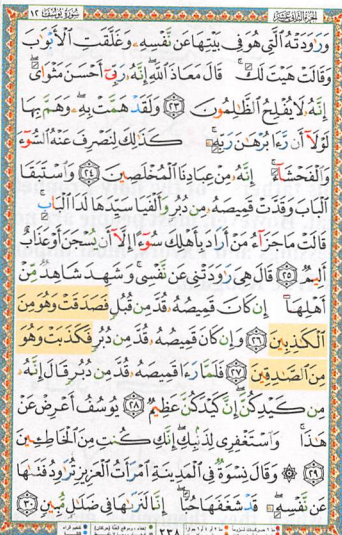 سُورَةُ يُوسُفَ ١٢
وَرَٰوَدَتْهُ ٱلَّتِى هُوَ فِى بَيْتِهَا عَن نَّفْسِهِۦ وَغَلَّقَتِ ٱلْأَبْوَٰبَ
وَقَالَتْ هَيْتَ لَكَ ۚ قَالَ مَعَاذَ ٱللَّهِ ۖ إِنَّهُۥ رَبِّىٓ أَحْسَنَ مَثْوَاىَ ۖ
إِنَّهُۥ لَا يُفْلِحُ ٱلظَّٰلِمُونَ ٢٣ وَلَقَدْ هَمَّتْ بِهِۦ ۖ وَهَمَّ بِهَا
لَوْلَآ أَن رَّءَا بُرْهَٰنَ رَبِّهِۦ ۚ كَذَٰلِكَ لِنَصْرِفَ عَنْهُ ٱلسُّوٓءَ
وَٱلْفَحْشَآءَ ۚ إِنَّهُۥ مِنْ عِبَادِنَا ٱلْمُخْلَصِينَ ٢٤ وَٱسْتَبَقَا
ٱلْبَابَ وَقَدَّتْ قَمِيصَهُۥ مِن دُبُرٍ وَأَلْفَيَا سَيِّدَهَا لَدَا ٱلْبَابِ ۚ
قَالَتْ مَا جَزَآءُ مَنْ أَرَادَ بِأَهْلِكَ سُوٓءًا إِلَّآ أَن يُسْجَنَ أَوْ عَذَابٌ
أَلِيمٌ ٢٥ قَالَ هِىَ رَٰوَدَتْنِى عَن نَّفْسِى ۚ وَشَهِدَ شَاهِدٌ مِّنْ
أَهْلِهَآ إِن كَانَ قَمِيصُهُۥ قُدَّ مِن قُبُلٍ فَصَدَقَتْ وَهُوَ مِنَ
ٱلْكَٰذِبِينَ ٢٦ وَإِن كَانَ قَمِيصُهُۥ قُدَّ مِن دُبُرٍ فَكَذَبَتْ وَهُوَ
مِنَ ٱلصَّٰدِقِينَ ٢٧ فَلَمَّا رَءَا قَمِيصَهُۥ قُدَّ مِن دُبُرٍ قَالَ إِنَّهُۥ
مِن كَيْدِكُنَّ ۖ إِنَّ كَيْدَكُنَّ عَظِيمٌ ٢٨ يُوسُفُ أَعْرِضْ عَنْ
هَٰذَا ۚ وَٱسْتَغْفِرِى لِذَنۢبِكِ ۖ إِنَّكِ كُنتِ مِنَ ٱلْخَاطِـِٔينَ
٢٩ ۞ وَقَالَ نِسْوَةٌ فِى ٱلْمَدِينَةِ ٱمْرَأَتُ ٱلْعَزِيزِ تُرَٰوِدُ فَتَىٰهَا
عَن نَّفْسِهِۦ ۖ قَدْ شَغَفَهَا حُبًّا ۖ إِنَّا لَنَرَىٰهَا فِى ضَلَٰلٍ مُّبِينٍ ٣٠
٢٣٨